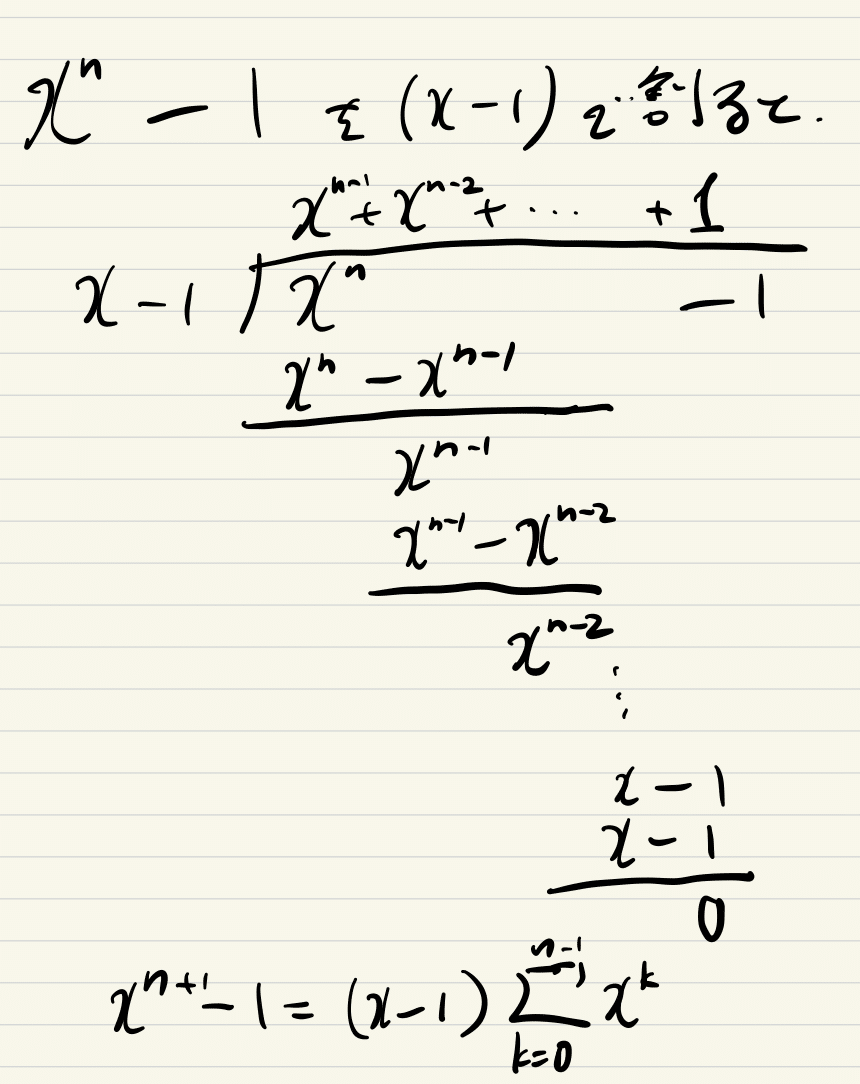 xⁿ − 1 を (x−1) で割ると.
xⁿ⁻¹ + xⁿ⁻² + ⋯ + 1
x − 1 ) xⁿ − 1
xⁿ − xⁿ⁻¹
xⁿ⁻¹
xⁿ⁻¹ − xⁿ⁻²
xⁿ⁻²
⋮
x − 1
x − 1
0
xⁿ⁺¹ − 1 = (x−1) ∑_{k=0}^{n−1} xᵏ